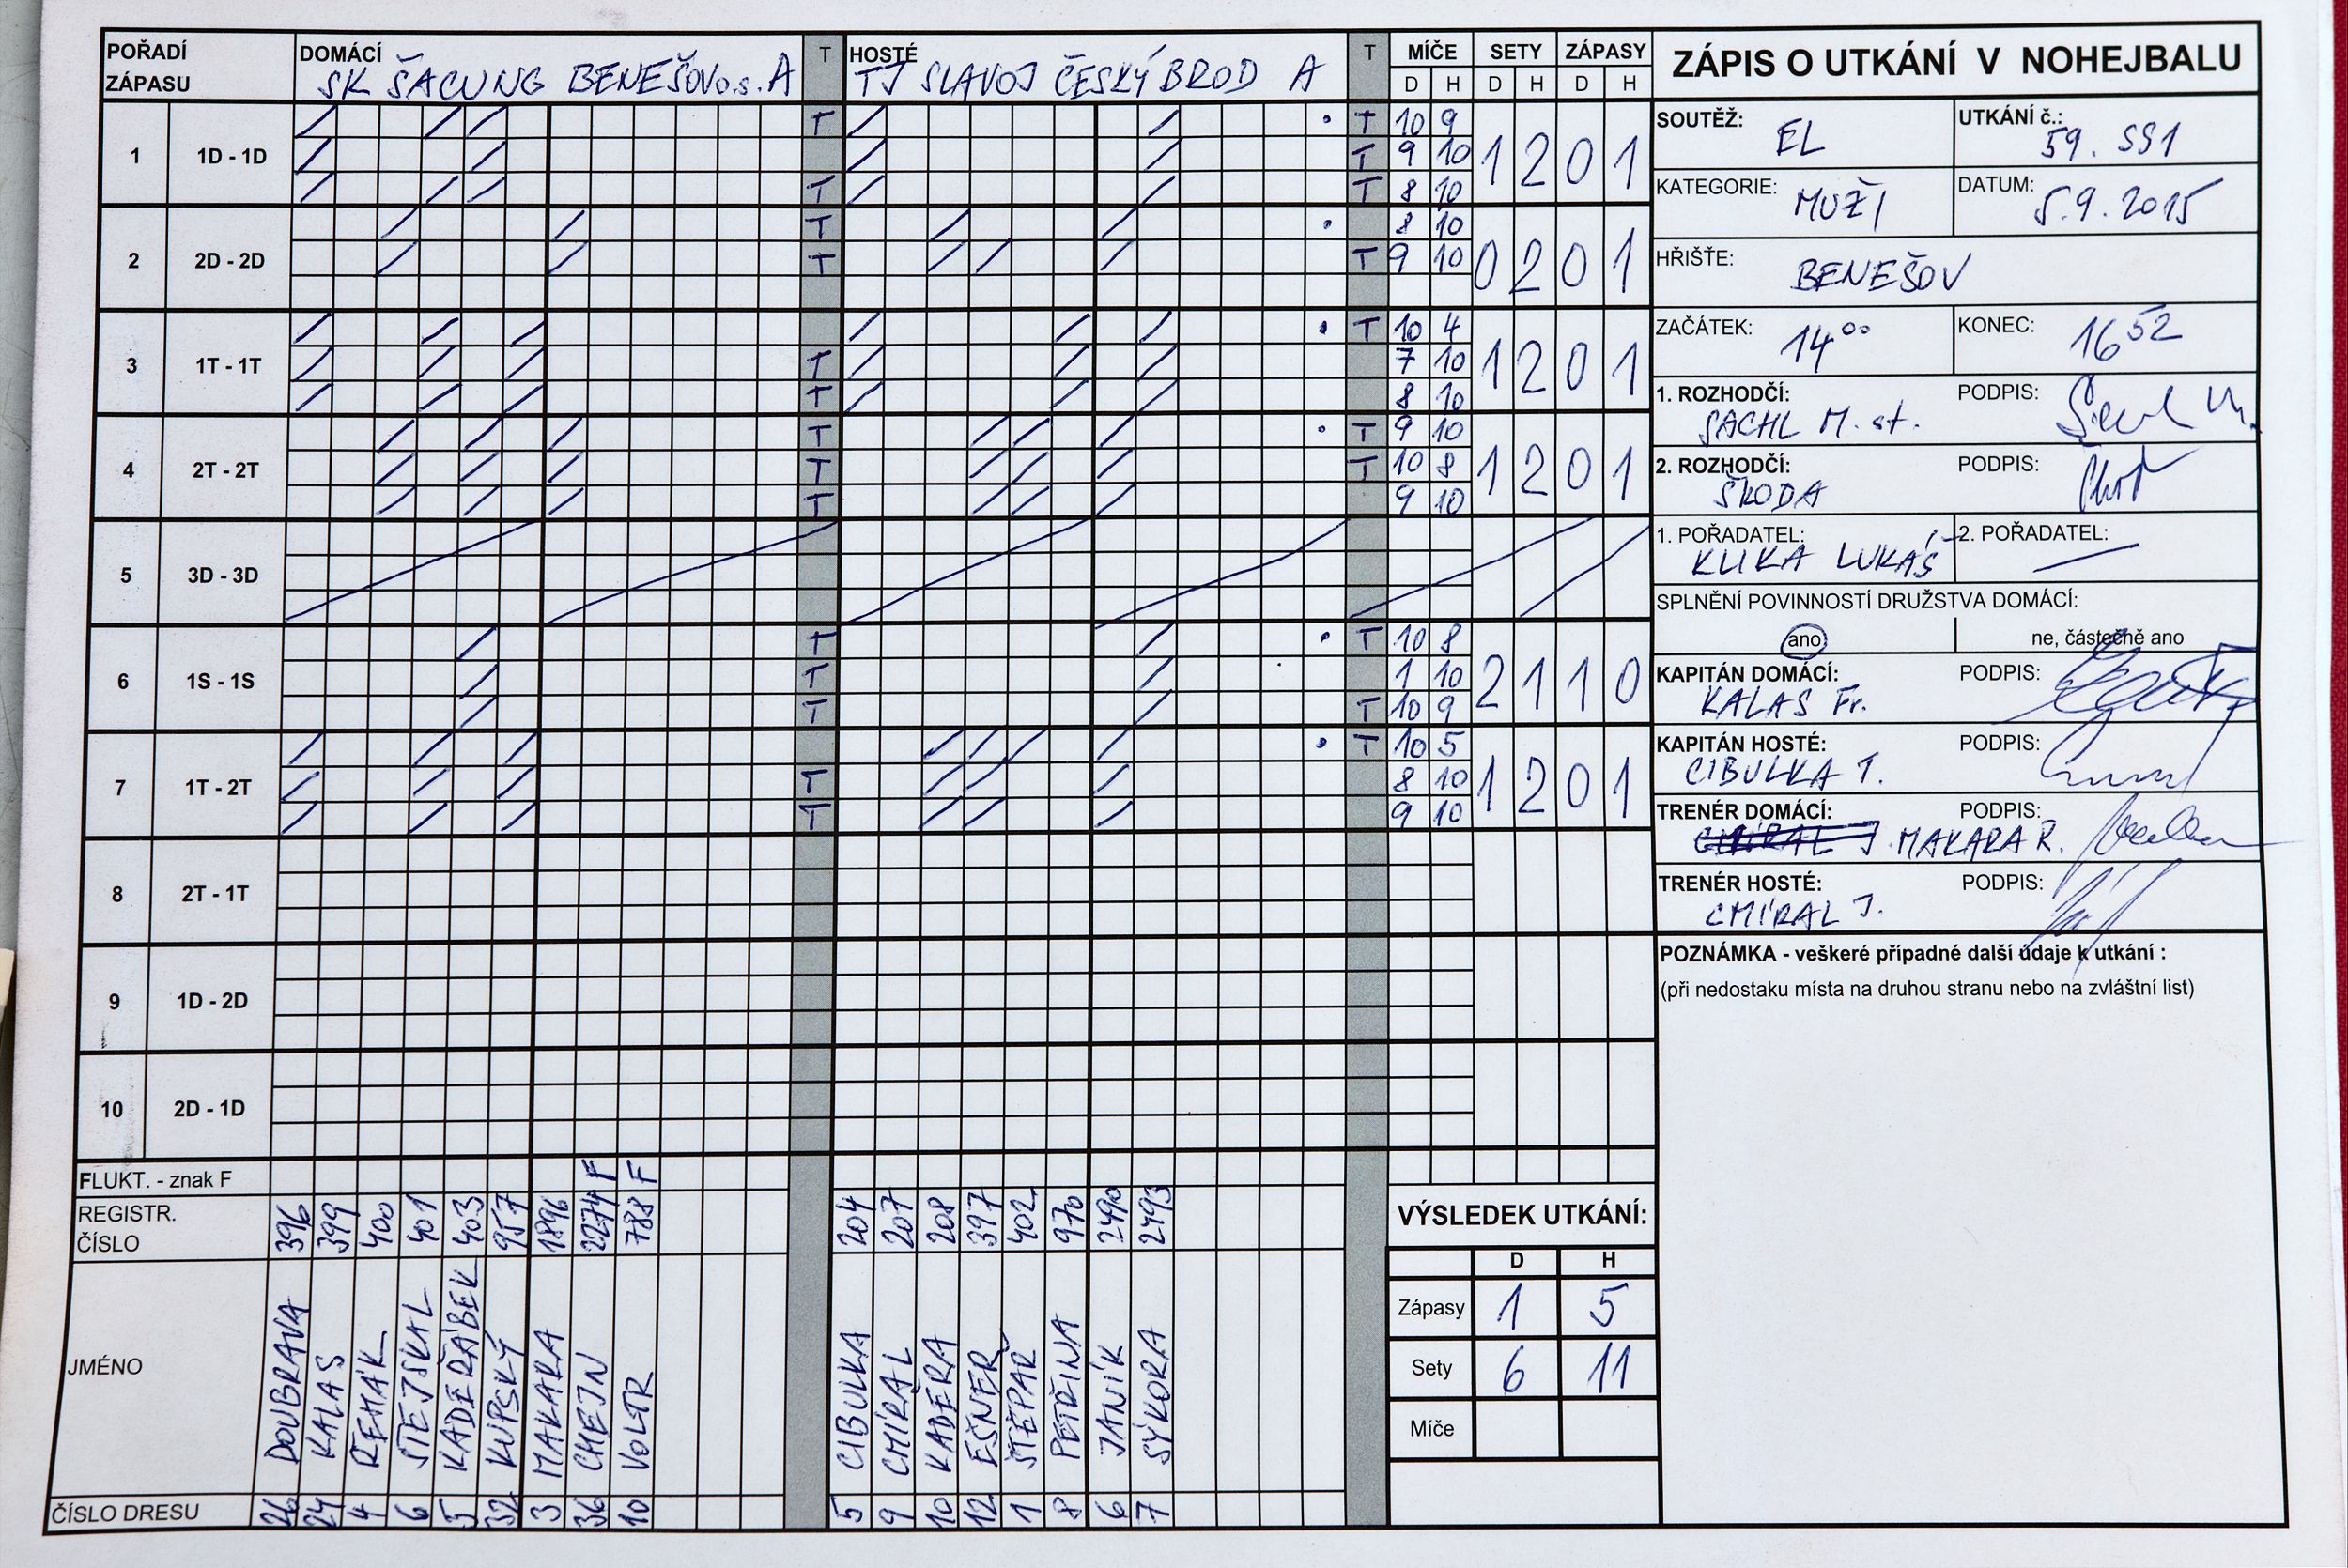 POŘADÍ ZÁPASU
DOMÁCÍ
SK ŠACUNG BENEŠOV o.s. A
T
HOSTÉ
TJ SLAVOJ ČESKÝ BROD A
T
MÍČE SETY ZÁPASY
D H D H D H
1 1D - 1D
T T 10 9
T 9 10 1 2 0 1
T T 8 10
2 2D - 2D
T 8 10
T T 9 10 0 2 0 1
3 1T - 1T
T 10 4
T 7 10 1 2 0 1
T 8 10
4 2T - 2T
T T 9 10
T T 10 8 1 2 0 1
T 9 10
5 3D - 3D
6 1S - 1S
T T 10 8
T 1 10 2 1 1 0
T T 10 9
7 1T - 2T
T 10 5
T 8 10 1 2 0 1
T 9 10
8 2T - 1T
9 1D - 2D
10 2D - 1D
FLUKT. - znak F
F F
REGISTR. ČÍSLO
396 399 400 401 403 957 1896 2274 788
204 207 208 397 402 970 2490 2493
JMÉNO
DOUBRAVA KALAS ŘEHÁK STEJSKAL KADEŘÁBEK KUPSKÝ MAKARA CHEJN VOLTR
CIBULKA CMÍRAL KADEŘA EŠNER ŠTĚPAŘ PETŘINA JANÍK SÝKORA
ČÍSLO DRESU
26 24 4 6 5 32 3 36 10
5 9 10 12 1 8 6 7
VÝSLEDEK UTKÁNÍ:
D H
Zápasy 1 5
Sety 6 11
Míče
ZÁPIS O UTKÁNÍ V NOHEJBALU
SOUTĚŽ: EL
UTKÁNÍ č.: 59. SS1
KATEGORIE: MUŽI
DATUM: 5.9.2015
HŘIŠTE: BENEŠOV
ZAČÁTEK: 14 00
KONEC: 16 52
1. ROZHODČÍ: SACHL M. st.
PODPIS:
2. ROZHODČÍ: ŠKODA
PODPIS:
1. POŘADATEL: KLIKA LUKÁŠ
2. POŘADATEL: —
SPLNĚNÍ POVINNOSTÍ DRUŽSTVA DOMÁCÍ:
ano
ne, částečně ano
KAPITÁN DOMÁCÍ: KALAS Fr.
PODPIS:
KAPITÁN HOSTÉ: CIBULKA T.
PODPIS:
TRENÉR DOMÁCÍ: CMÍRAL J. MAKARA R.
PODPIS:
TRENÉR HOSTÉ: CMÍRAL J.
PODPIS:
POZNÁMKA - veškeré případné další údaje k utkání :
(při nedostaku místa na druhou stranu nebo na zvláštní list)